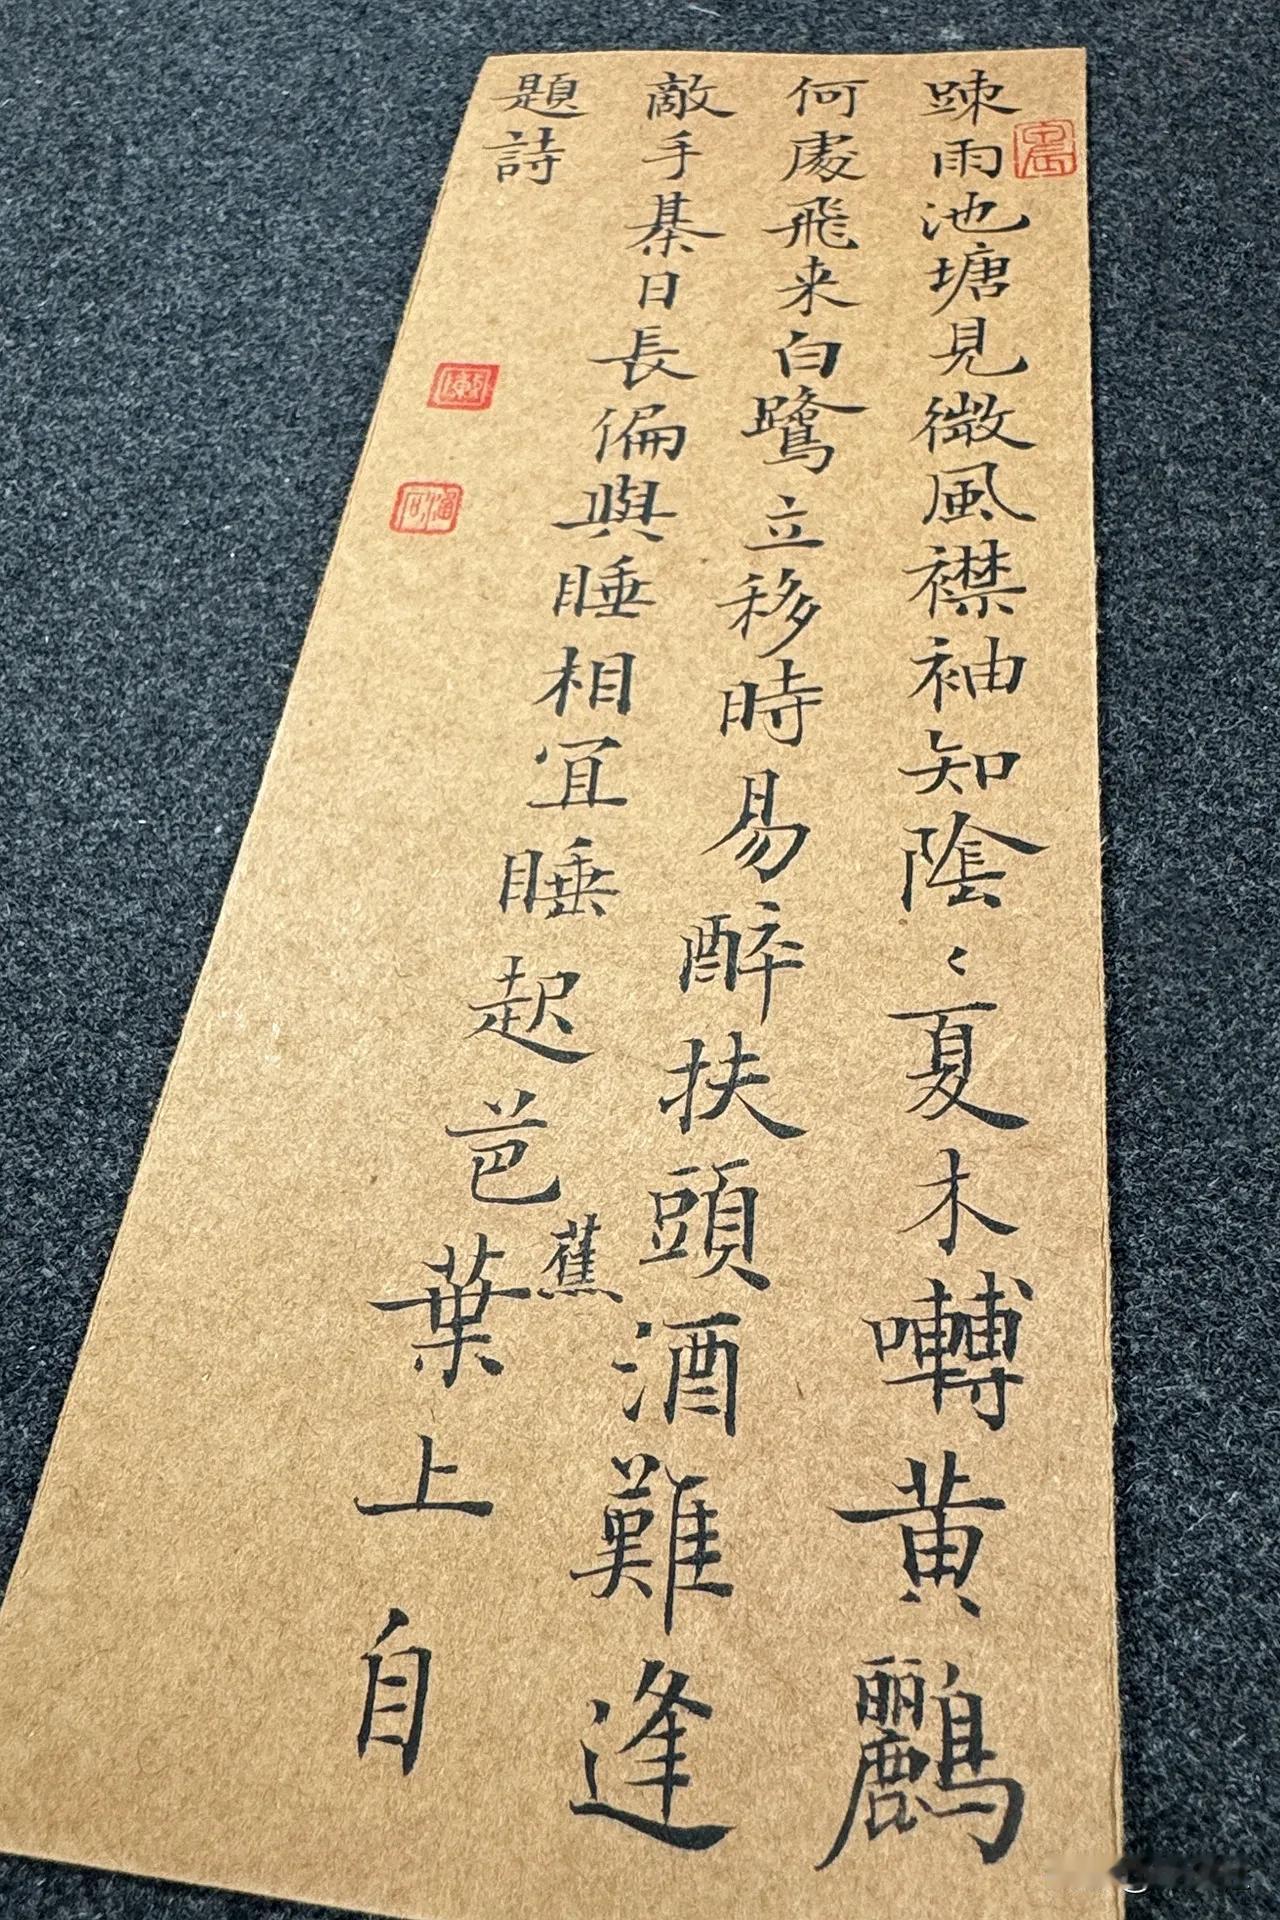 踈雨池塘見微風襟袖知陰〻夏木囀黄鸝
何處飛来白鷺立移時易醉扶頭酒難逢
敵手棊日長偏與睡相宜睡起芭蕉葉上自
題詩